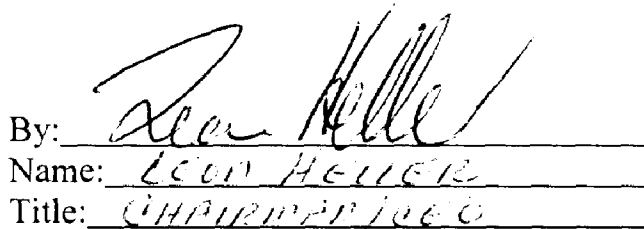 By: Leon Heller
Name: LEON HELLER
Title: CHAIRMAN/CEO